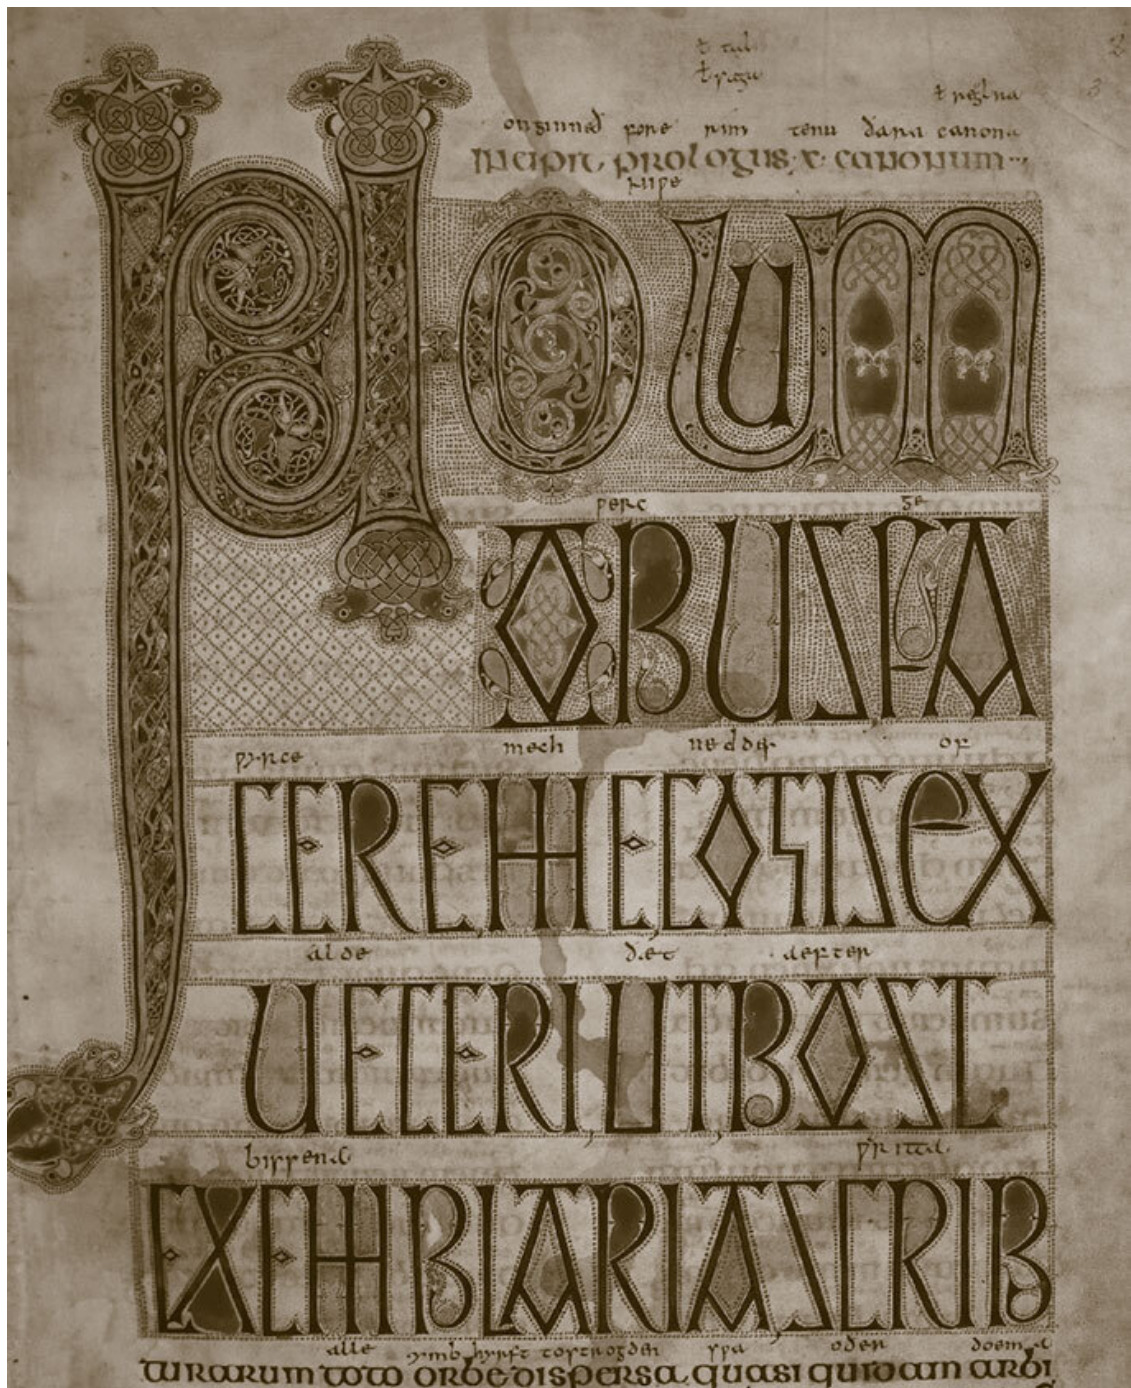 onginneð fore rim tenu ðara canona
Incipit prologus x canonum
niwe
NOUUM
werc ge
OPUS FA
wyrce mech neddes of
CERE ME COGIS EX
alde ðæt aefter
UETERI UT POST
bissena writta
EXEMPLARIA SCRIP
alle ymb hwyrft tostrogden swa oðer doema
turarum toto orbe dispersa quasi quidam arbi